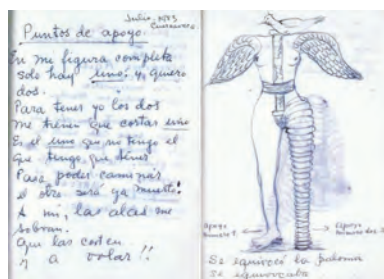 Julio, 1953
Cuernavaca
Puntos de apoyo.
En mi figura completa
solo hay uno; y quiero
dos.
Para tener yo los dos
me tienen que cortar uno
Es el uno que no tengo el
que tengo que tener
Para poder caminar
el otro será ya muerto!
A mi, las alas me
sobran.
Que las corten
y a volar!!
Apoyo
numero 1.
Apoyo
numero dos 2
Se equivocó la paloma
Se equivocaba